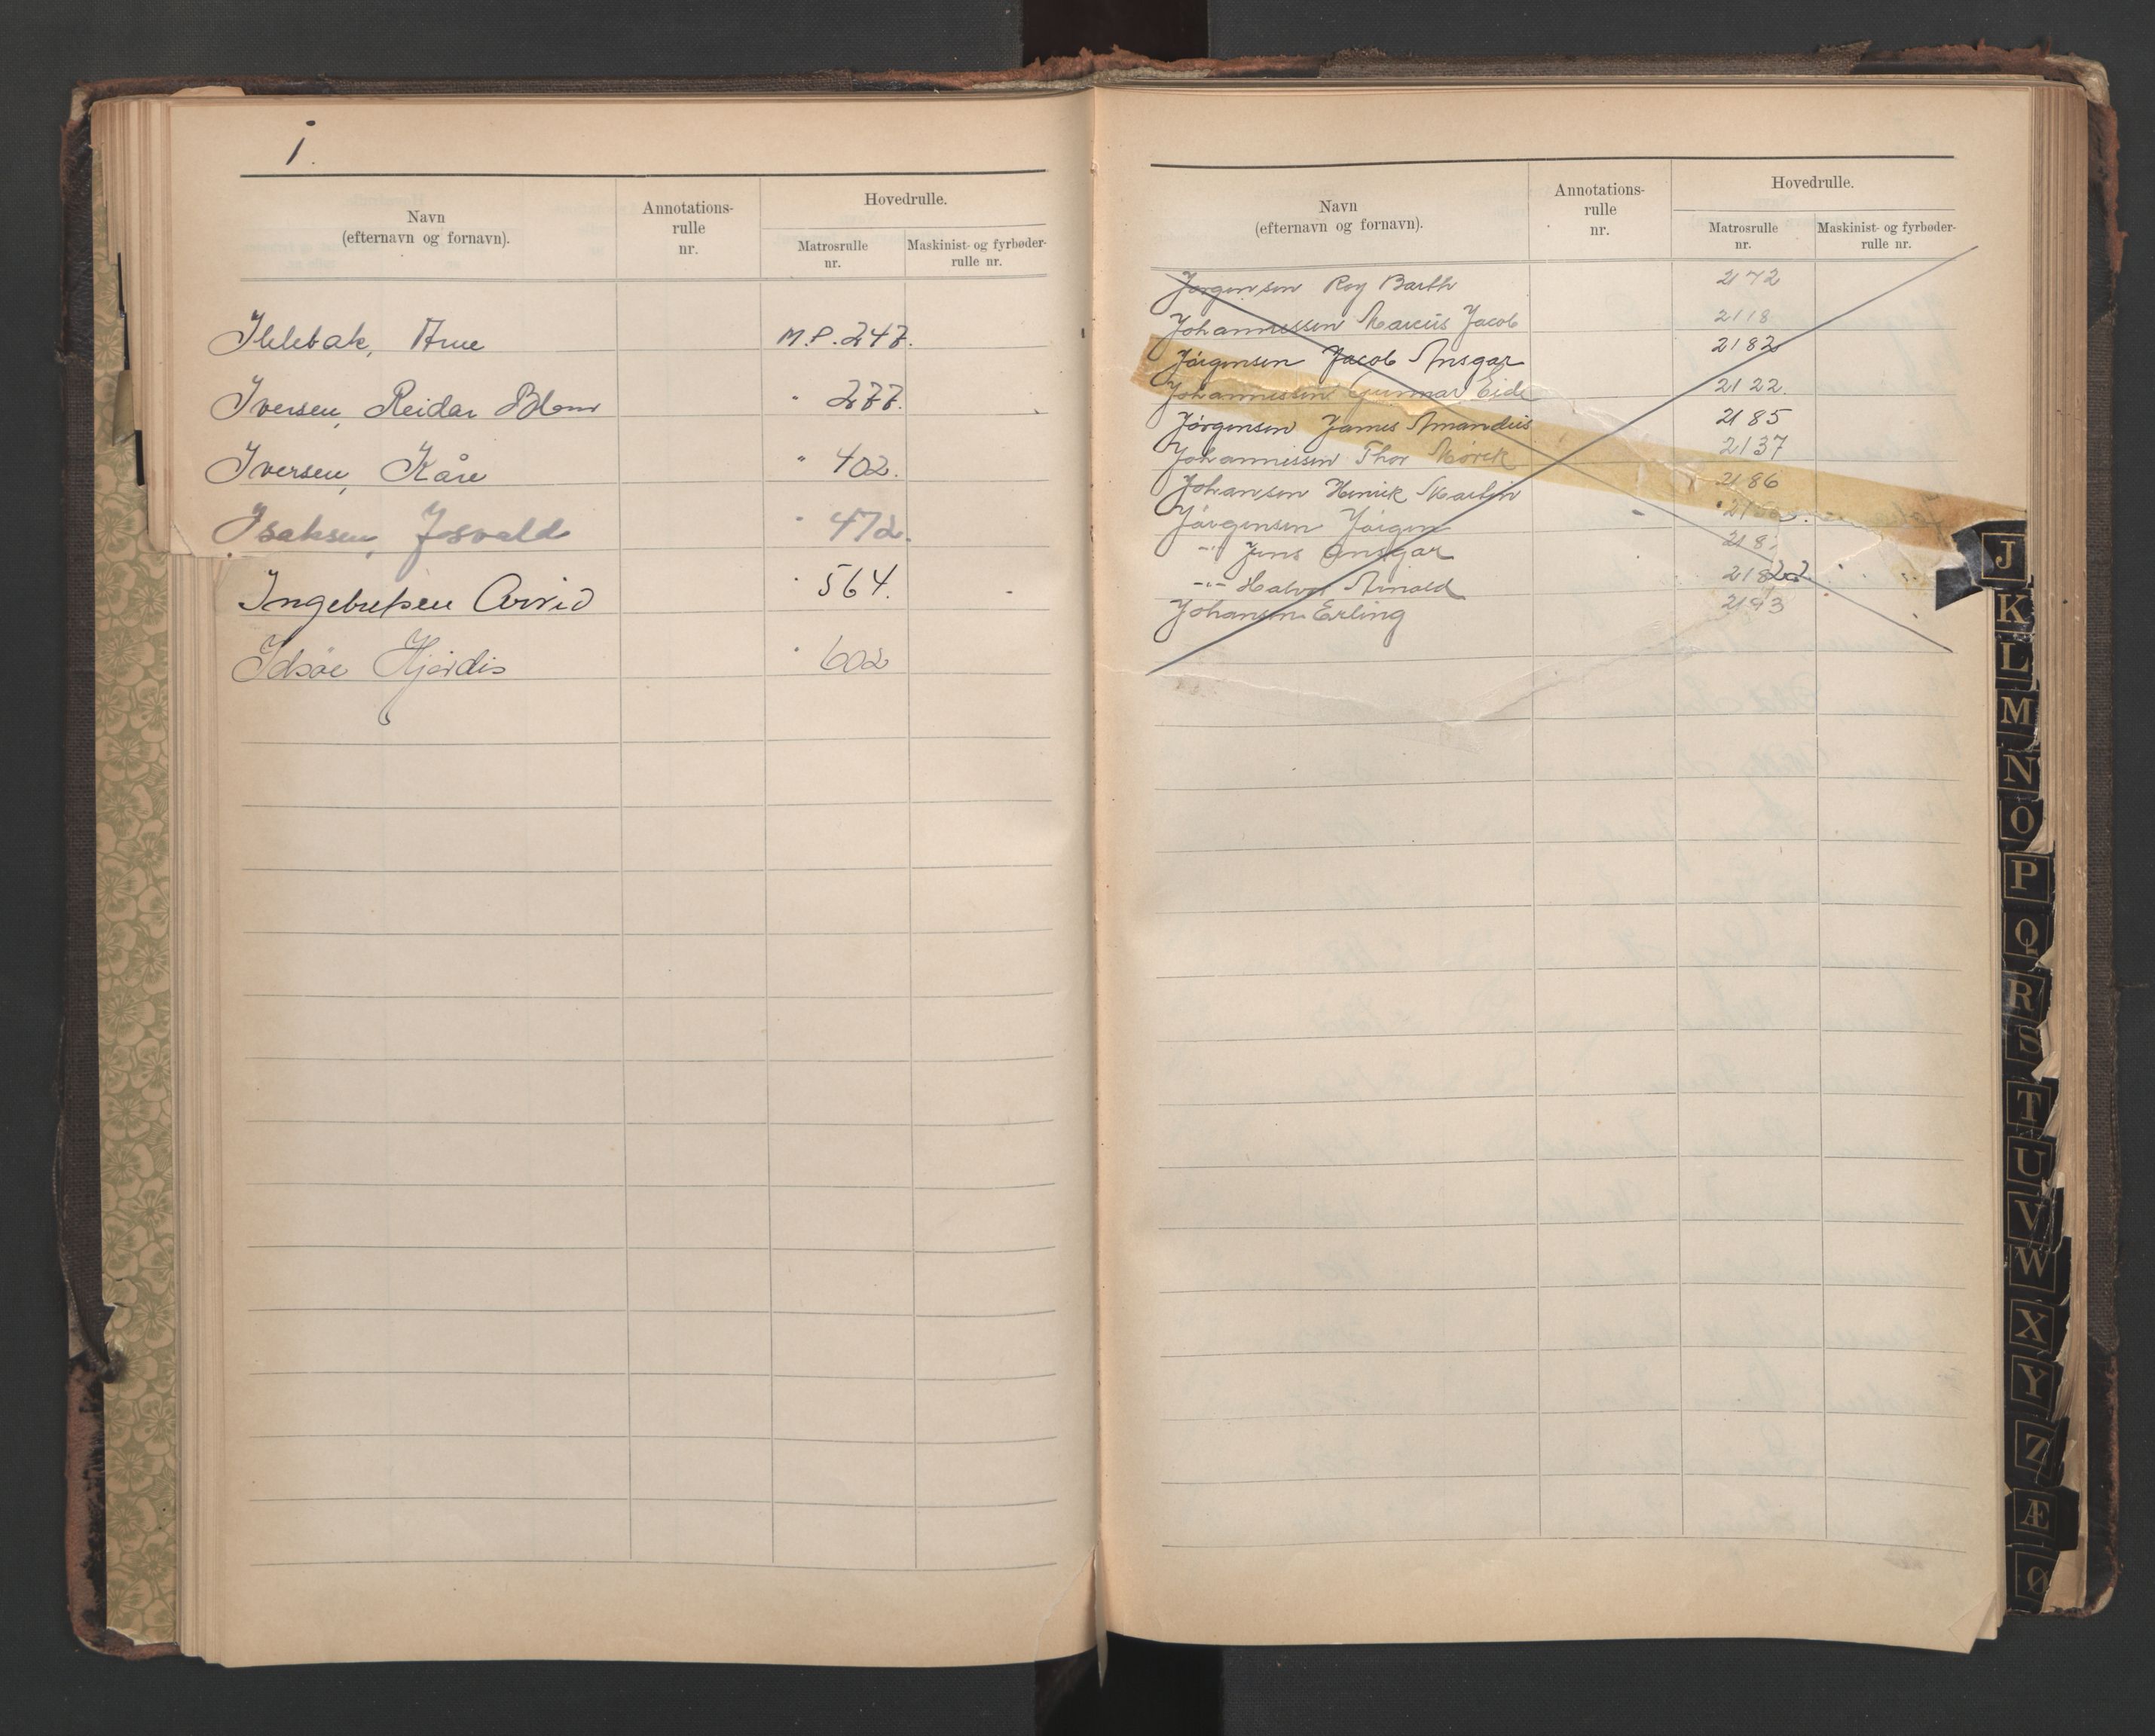 i.
Navn
(efternavn og fornavn).
Annotations-
rulle
nr.
Hovedrulle.
Matrosrulle
nr.
Maskinist- og fyrbøder-
rulle nr.
Illebak, Arne M.P. 247.
Iversen, Reidar Blom " 277.
Iversen, Kåre " 402.
Isaksen, Josvald " 472.
Ingebretsen Arvid " 564.
Idsøe Hjørdis " 602
Navn
(efternavn og fornavn).
Annotations-
rulle
nr.
Hovedrulle.
Matrosrulle
nr.
Maskinist- og fyrbøder-
rulle nr.
Jørgensen Roy Barth 2172
Johannessen Marius Jacob 2118
Jørgensen Jacob Ansgar 2182
Johannessen Gunnar Eide 2122.
Jørgensen James Amandus 2185
Johannissen Thor Mørck 2137
Johansen Henrik Martin 2186
Jørgensen Jørgen
-"- Jens Ansgar 218
-"- Halvor Arnold
Johansen Erling 2193
J
K
L
M
N
O
P
Q
R
S
T
U
V
W
X
Y
Z
Æ
Ø